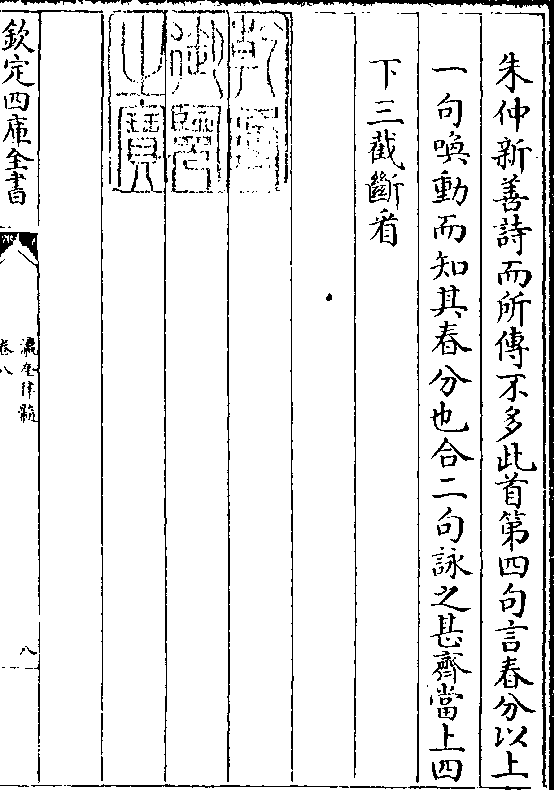 朱仲新善詩而所傳不多此首第四句言春分以上
一句喚動而知其春分也合二句詠之甚齊當上四
下三截斷看
乾隆
御覽
之寶
欽定四庫全書
瀛奎律髓
卷八
八